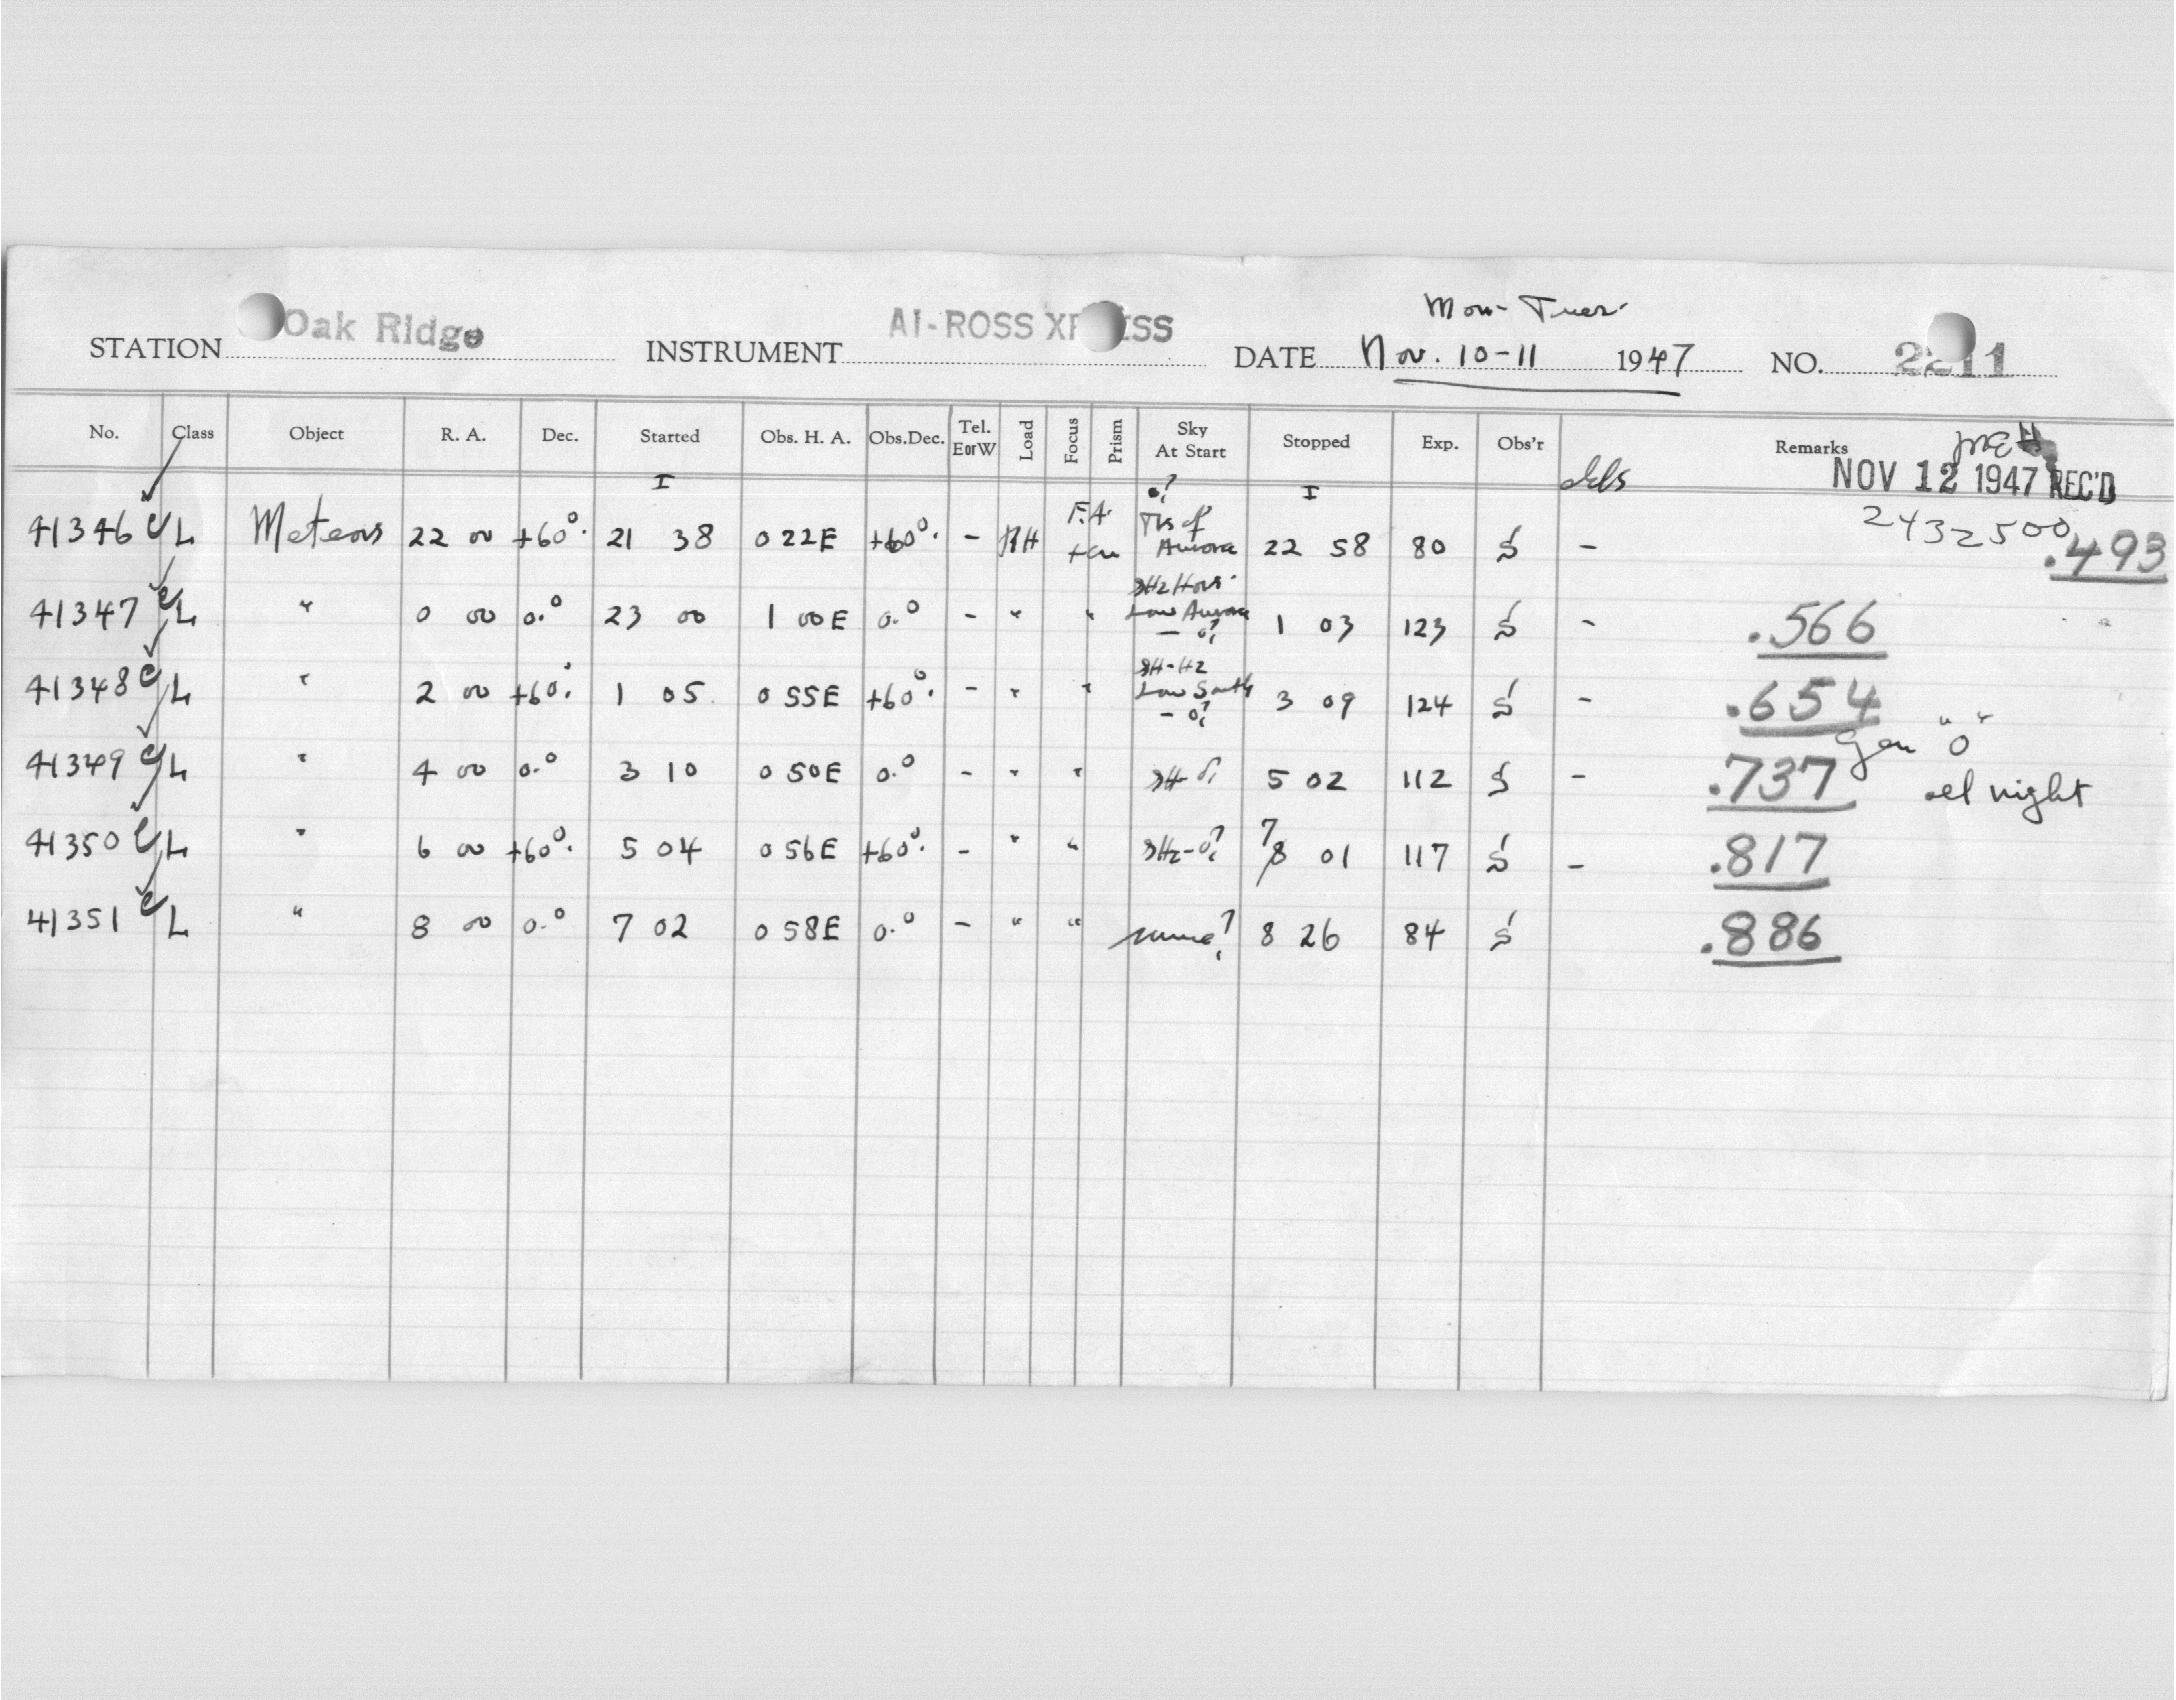 Mon-Tues.
STATION Oak Ridge INSTRUMENT AI-ROSS XPRESS DATE Nov. 10-11 1947 NO. 2211
No. Class Object R. A. Dec. Started Obs. H. A. Obs.Dec. Tel. EorW Load Focus Prism Sky At Start Stopped Exp. Obs'r Remarks
NOV 12 1947 REC'D
I I
2432500
41346 C L Meteors 22 00 +60°. 21 38 0 22E +60°. - RH F.A. Trs of Aurora 22 58 80 S - .493
41347 C L " 0 00 0.° 23 00 1 00E 0.° - " " Low Aurora 1 03 123 S - .566
41348 C L " 2 00 +60°. 1 05 0 55E +60°. - " " Low South 3 09 124 S - .654
41349 C L " 4 00 0.° 3 10 0 50E 0.° - " " 5 02 112 S - .737 Gen "0"
all night
41350 C L " 6 00 +60°. 5 04 0 56E +60°. - " " 7 8 01 117 S - .817
41351 C L " 8 00 0.° 7 02 0 58E 0.° - " " same? 8 26 84 S .886